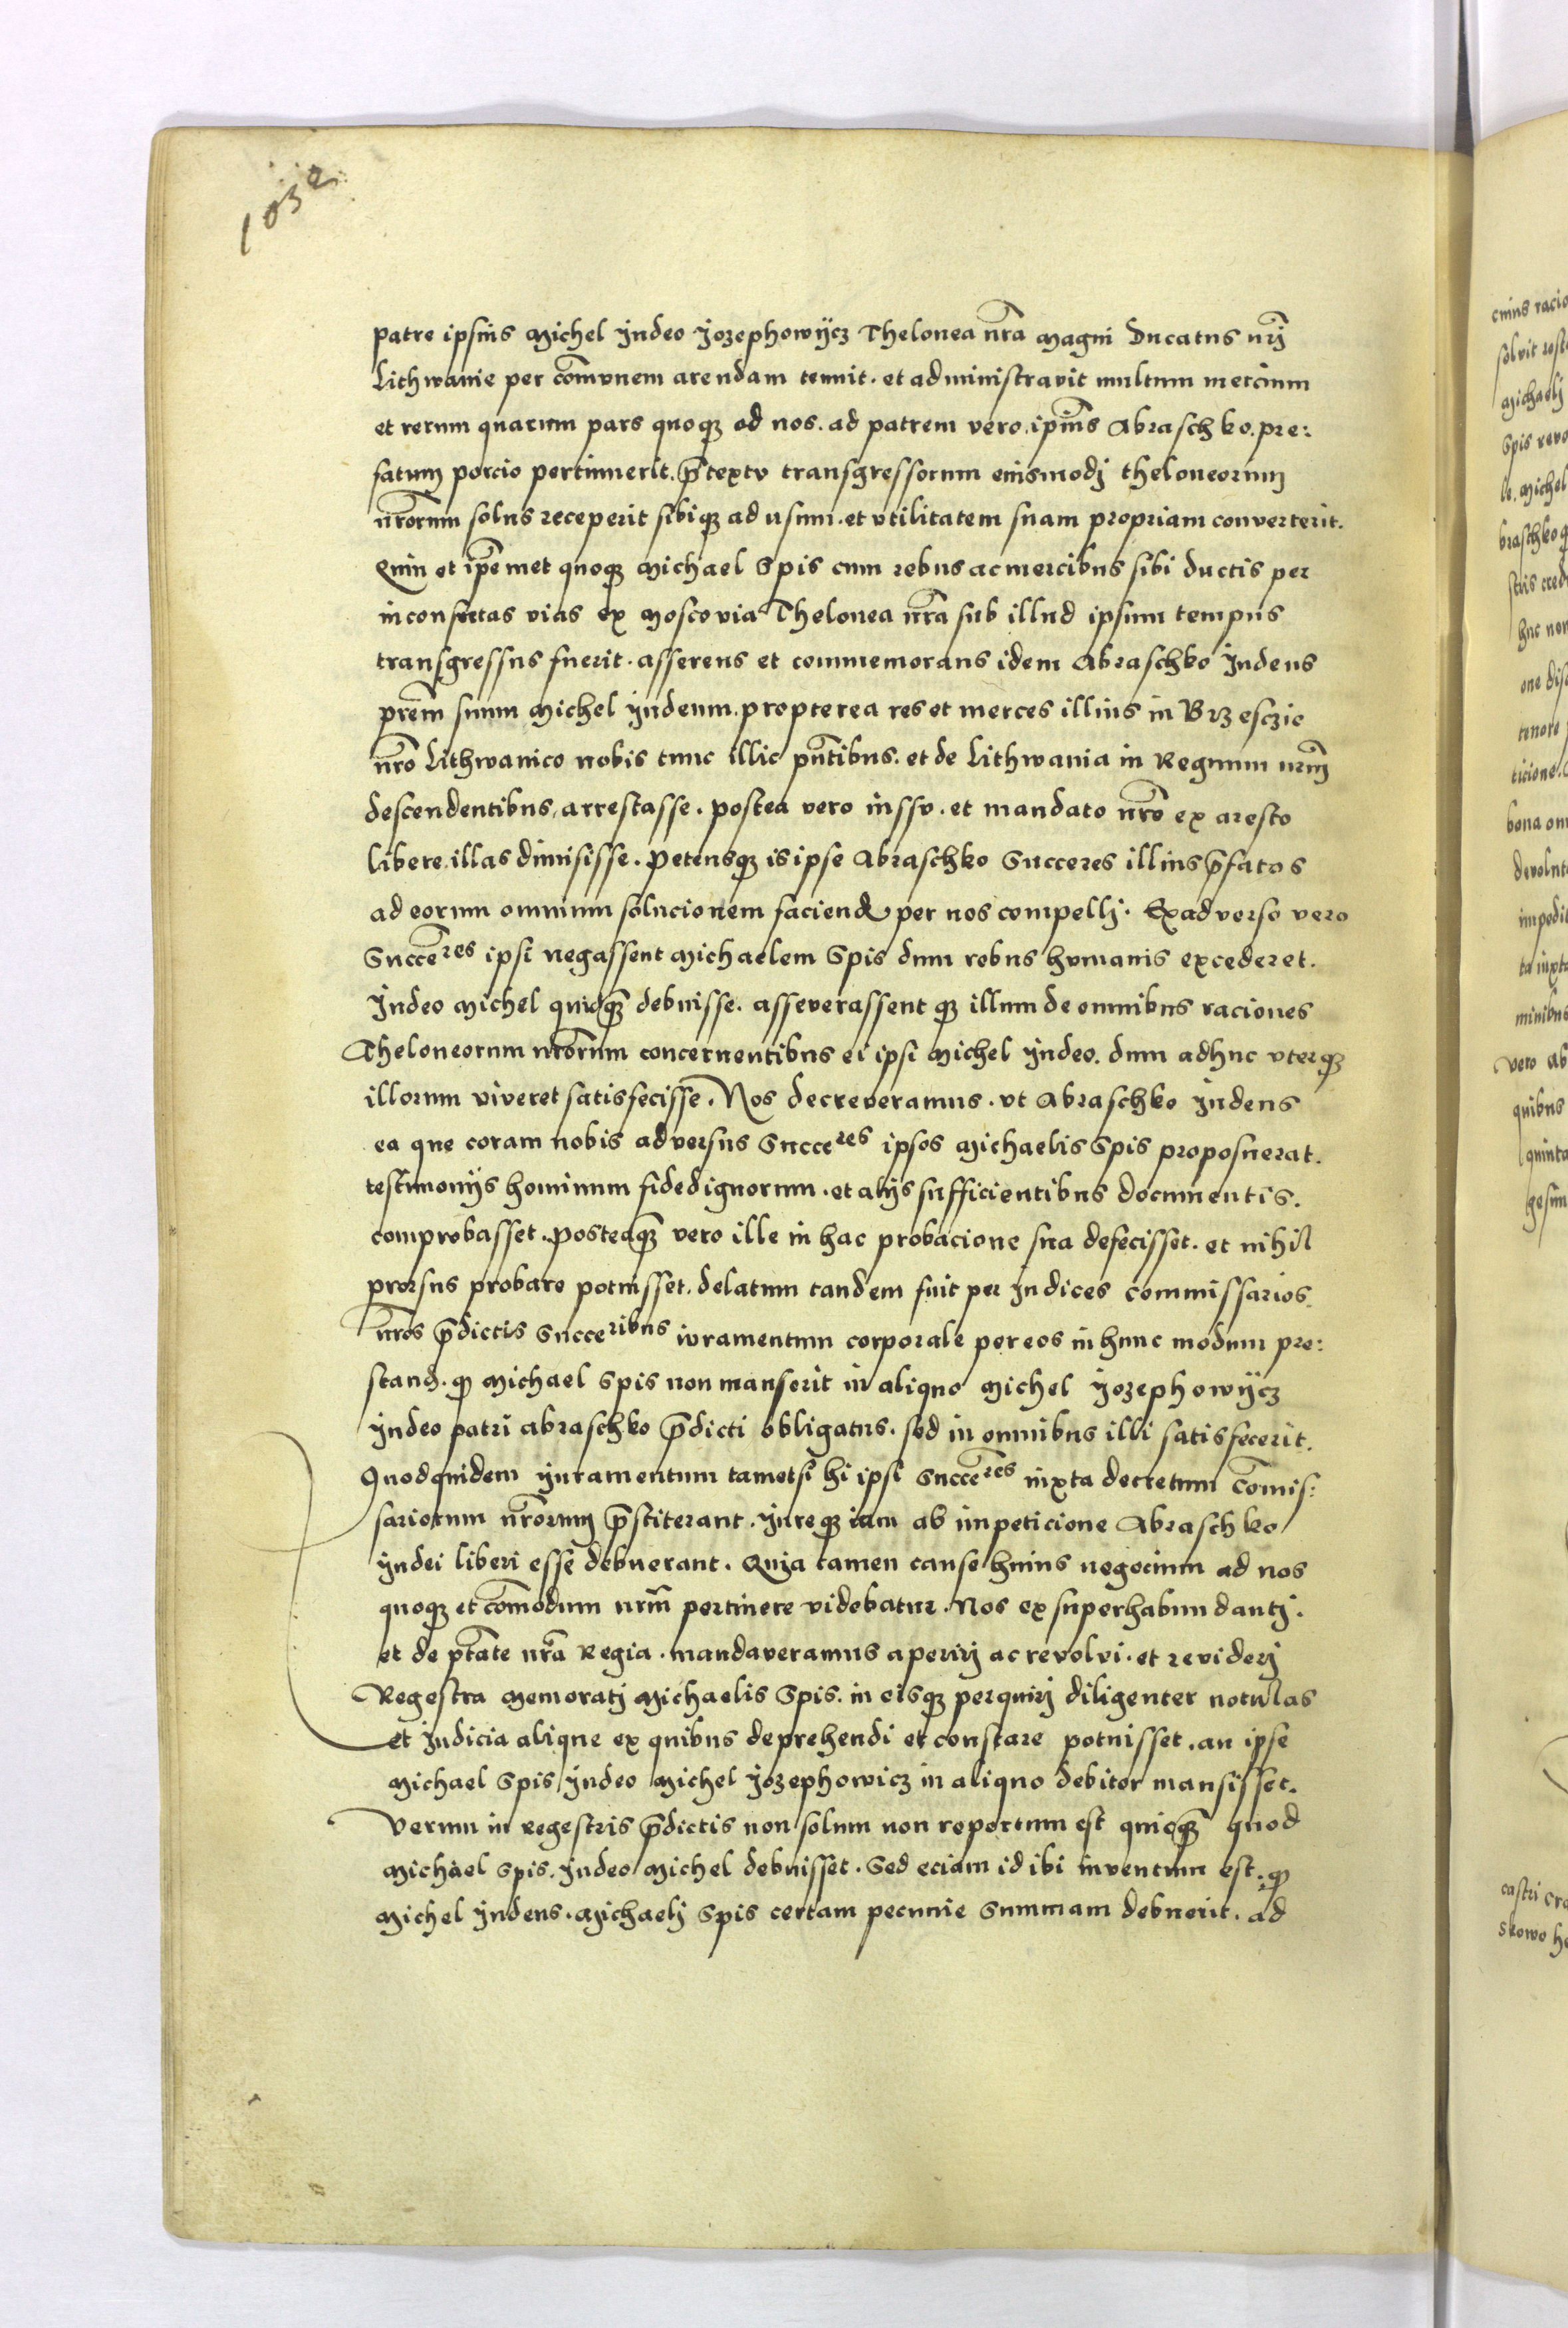 1032
patre ipsius Michel Judeo Jozephowycz Thelonea nr̃a Magni Ducatus nr̃j
Lithwanie per com̃unem arendam tenuit. et administravit multum mercium
et rerum quarum pars quoqꝫ ad nos. ad patrem vero ip̃ius Abraschko. pre:
fatum porcio pertinuerit. p̃textu transgressorum eiusmodj theloneorum
nr̃orum solus receperit sibiqꝫ ad usum. et utilitatem suam propriam converterit.
Quin et ip̃emet quoqꝫ Michael Spis cum rebus ac mercibus sibi ductis per
inconsuetas vias ex Moscovia Thelonea nr̃a sub illud ipsum tempus
transgressus fuerit. asserens et commemorans idem Abraschko Judeus
pr̃em suum Michel Judeum. propterea res et merces illius in Brzesczie
nr̃o Lithwanico nobis tunc illic pñtibus. et de Lithwania in Regnum nr̃m
descendentibus, arrestasse. postea vero iussu. et mandato nr̃o ex aresto
libere. illas dimisisse. petensqꝫ is ipse Abraschko Succeres illius p̃fatos
ad eorum omnium solucionem faciend per nos compellj. Ex adverso vero
Succẽres ipsi negassent Michaelem Spis dum rebus humanis excederet.
Judeo Michel quicq̃ꝫ debuisse. asseverassent qꝫ illum de omnibus raciones
Theloneorum nr̃orum concernentibus ei ipsi Michel Judeo. dum adhuc uterqꝫ
illorum viveret satisfecisse. Nos decreveramus. ut Abraschko Judeus
ea que coram nobis adversus Succeres ipsos Michaelis Spis proposuerat.
testimonijs hominum fidedignorum. et alijs sufficientibus documentis.
comprobasset. posteaq̃ꝫ vero ille in hac probacione sua defecisset. et nihil
prorsus probare potuisset. delatum tandem fuit per Judices commissarios.
nr̃os p̃dictis Succeribus iuramentum corporale per eos in hunc modum pre:
stand. qꝫ Michael Spis non manserit in aliquo Michel Jozephowycz
Judeo patri Abraschko p̃dicti obligatus. sed in omnibus illi satisfecerit.
Quodquidem iuramentum tametsi hi ipsi Succẽres iuxta decretum com̃is:
sariorum nr̃orum p̃stiterant. Jureqꝫ iam ab impeticione Abraschko
Judei liberi esse debuerant. Quia tamen cause huius negocium ad nos
quoqꝫ et com̃odum nr̃m pertinere videbatur. Nos ex superhabundantj.
et de ptãte nr̃a Regia. mandaveramus aperirj ac revolvi. et reviderj
Regestra memoratj Michaelis Spis. in eisqꝫ perquirj diligenter notulas
et Judicia aliqne ex quibus deprehendi et constare potuisset. an ipse
Michael Spis Judeo Michel Jozephowicz in aliquo debitor mansisset.
Verum in Regestris p̃dictis non solum non repertum est quicq̃ꝫ quod
Michael Spis. Judeo Michel debuisset. Sed eciam id ibi inventum est. qꝫ
Michel Judeus. Michaelj Spis certam pecunie Summam debuerit. ad